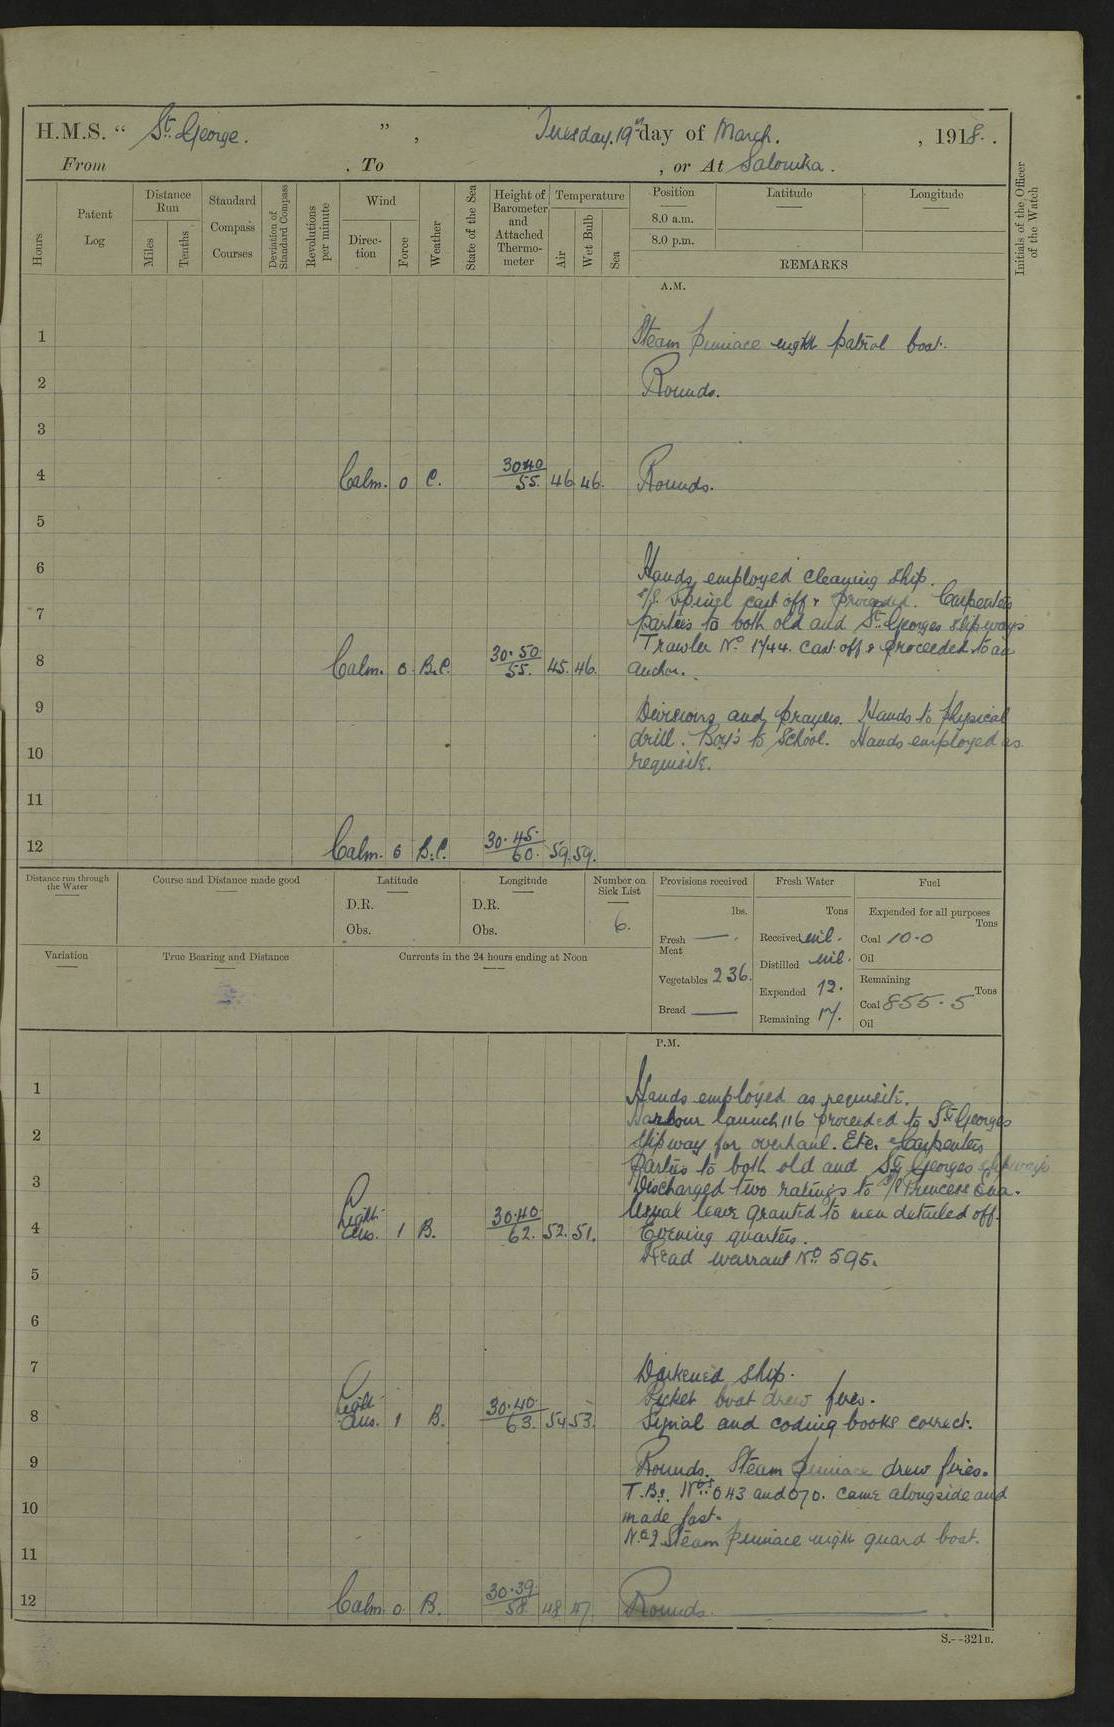 H.M.S. “ St. George. ” , Tuesday. 19th day of March. , 1918. .
From . To , or At Salonika .
Hours
Patent Log
Distance Run
Miles
Tenths
Standard Compass Courses
Deviation of Standard Compass
Revolutions per minute
Wind
Direc-tion
Force
Weather
State of the Sea
Height of Barometer and Attached Thermo-meter
Temperature
Air
Wet Bulb
Sea
Position Latitude Longitude
8.0 a.m.
8.0 p.m.
REMARKS
Initials of the Officer of the Watch
A.M.
1 Steam pinnace night patrol boat.
2 Rounds.
3
4 Calm. 0 C. 30.40 55. 46. 46. Rounds.
5
6 Hands employed cleaning ship.
cast off & proceeded. Carpenters
7 parties to both old and St. Georges slipways
Trawler No. 1744. cast off & proceeded to an
8 Calm. 0 B.C. 30.50 55. 45. 46. anchor.
9 Divisions and prayers. Hands to physical
drill. Boy's to School. Hands employed as
10 requisite.
11
12 Calm. 0 B.C. 30.45. 60. 59. 59.
Distance run through the Water
Course and Distance made good
Latitude
D.R.
Obs.
Longitude
D.R.
Obs.
Number on Sick List
6.
Provisions received
lbs.
Fresh Meat — .
Vegetables 236.
Bread —
Fresh Water
Tons
Received nil.
Distilled nil.
Expended 12.
Remaining 17.
Fuel
Expended for all purposes
Tons
Coal 10.0
Oil
Remaining
Tons
Coal 855.5
Oil
Variation
True Bearing and Distance
Currents in the 24 hours ending at Noon
P.M.
1 Hands employed as requisite.
Harbour launch 116 proceeded to St. Georges
2 slipway for overhaul. Etc. Carpenters
parties to both old and St. Georges slipways
3 Discharged two ratings to S/S Princess Ena.
Usual leave granted to men detailed off.
4 Light airs. 1 B. 30.40 62. 52. 51. Evening quarters.
Read warrant No. 595.
5
6
7 Darkened ship.
Picket boat drew fires.
8 Light airs. 1 B. 30.40. 63. 54 53. Signal and coding books correct.
9 Rounds. Steam pinnace drew fires.
T.Bs. Nos. 043 and 070. came alongside and
10 made fast.
No. 2 Steam pinnace night guard boat.
11
12 Calm. 0. B. 30.39. 58. 48. 47. Rounds.
S.—321B.